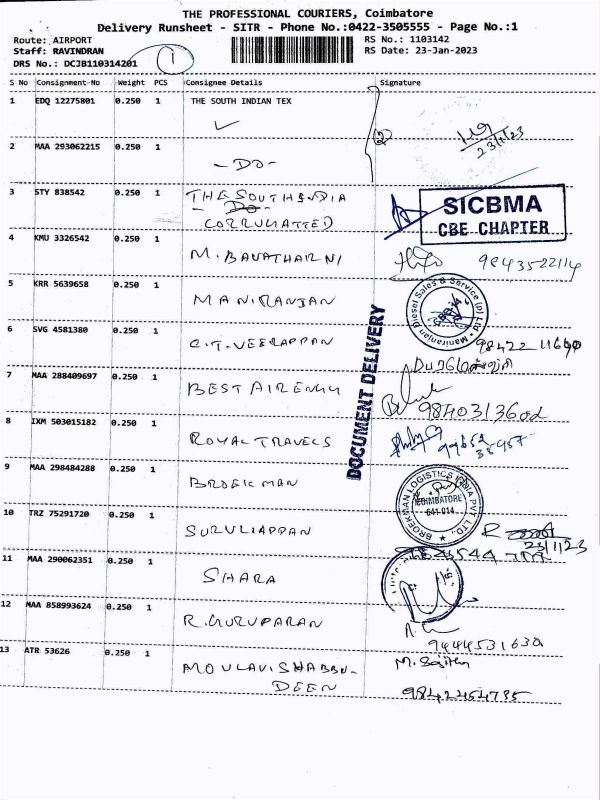 THE PROFESSIONAL COURIERS, Coimbatore
Delivery Runsheet - SITR - Phone No.:0422-3505555 - Page No.:1
Route: AIRPORT
RS No.: 1103142
Staff: RAVINDRAN
RS Date: 23-Jan-2023
DRS No.: DCJB110314201
1
S No Consignment-No Weight PCS Consignee Details Signature
1 EDQ 12275801 0.250 1 THE SOUTH INDIAN TEX
2
23/1/23
2 MAA 293062215 0.250 1 -DO-
3 STY 838542 0.250 1 THE SOUTH INDIA
DO
CORRUGATTED
SICBMA
CBE CHAPTER
4 KMU 3326542 0.250 1 M. BAVATHARNI
9843522114
5 KRR 5639658 0.250 1 MANIRANJAN
Maniranjan Diesel Sales & Service (P) Ltd
6 SVG 4581380 0.250 1 C.T. VEERAPPAN
DOCUMENT DELIVERY
7 MAA 288409697 0.250 1 BEST AIR ENGG
8 IXM 503015182 0.250 1 ROYAL TRAVELS
9 MAA 298484288 0.250 1 BROEKMAN
BROEKMAN LOGISTICS INDIA PVT LTD.,
COIMBATORE
641-014
10 TRZ 75291720 0.250 1 SURULIAPPAN
23/1/23
11 MAA 290062351 0.250 1 SHARA
12 MAA 858993624 0.250 1 R. GURUPARAN
13 ATR 53626 0.250 1 MOULAVISHABBU-
DEEN